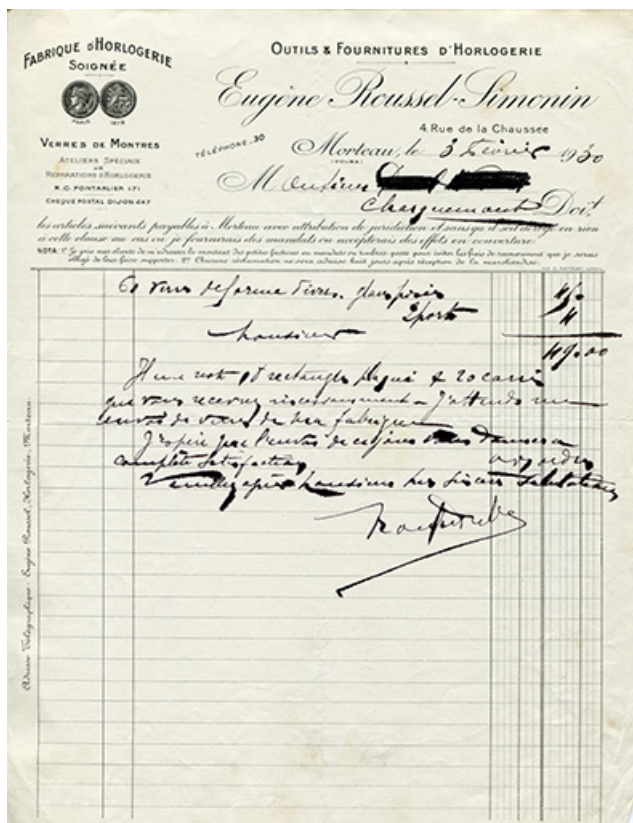 FABRIQUE D'HORLOGERIE
SOIGNÉE
PARIS 1878
VERRES DE MONTRES
ATELIERS SPÉCIAUX
DE
RÉPARATIONS D'HORLOGERIE
R.C. PONTARLIER 171
CHEQUE POSTAL DIJON 447
OUTILS & FOURNITURES D'HORLOGERIE
Eugène Roussel-Simonin
4, Rue de la Chaussée
TÉLÉPHONE-30
Morteau, le 3 Février 1930
(DOUBS)
Monsieur
Charquemont Doit
les articles suivants payables à Morteau avec attribution de juridiction et sans qu'il soit dérogé en rien
à cette clause au cas où je fournirais des mandats ou accepterais des effets en couverture.
NOTA: 1º Je prie mes clients de m'adresser le montant des petites factures en mandats ou timbres poste pour éviter les frais de recouvrement que je serais
obligé de leur faire supporter. 2º Aucune réclamation ne sera admise huit jours après réception de la marchandise.
60 verres de forme divers
port 4
Monsieur
49.00
Il me reste 18 rectangles & 20 carrés
que vous recevrez incessamment - J'attends un
envoi de verres de ma fabrique
J'espère que l'envoi de ce jour vous donnera
complète satisfaction
Monsieur mes sincères salutations
Adresse Télégraphique: Eugène Roussel, Horlogerie, Morteau.